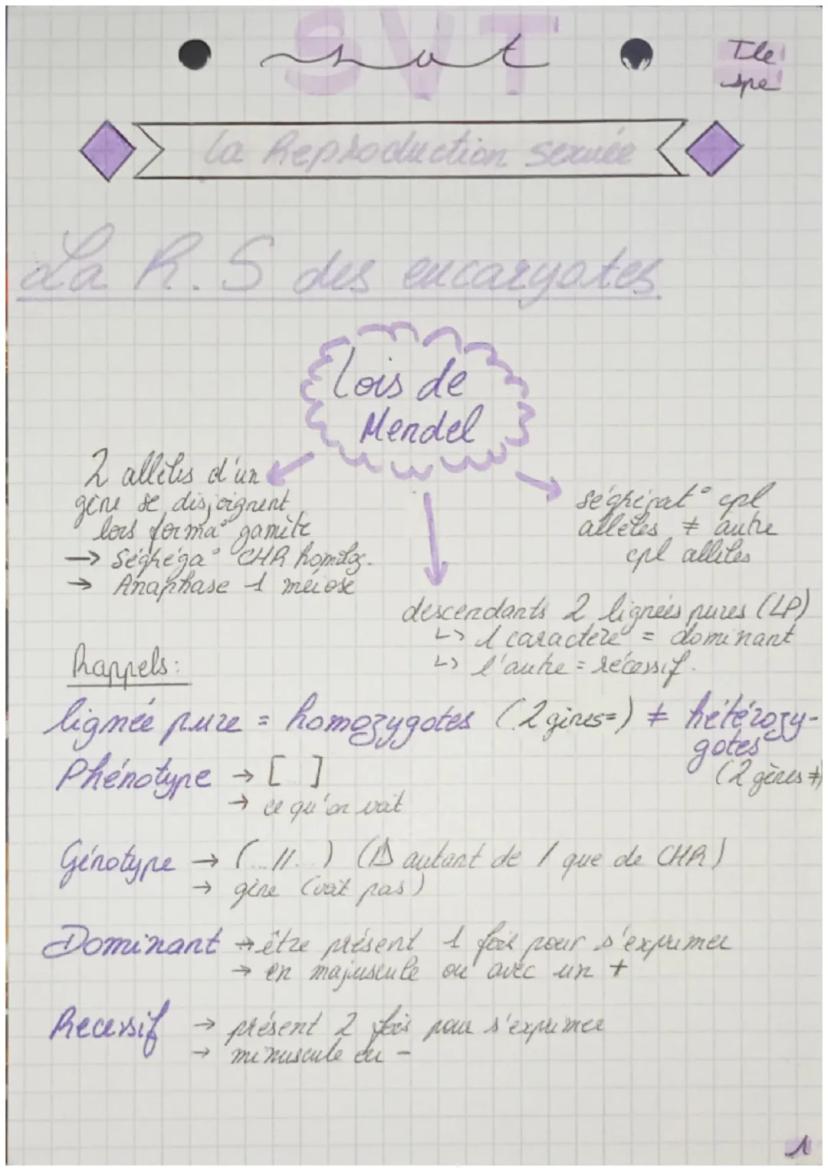 SVT
Tle
spe
La Reproduction sexuée
La R.S des eucaryotes
Lois de
Mendel
2 allèles d'un
gène se disjoignent
lors forma° gamète
→ Ségréga° CHR homolog.
→ Anaphase 1 meiose
ségrégat° cpl
allèles ≠ autre
cpl allèles
descendants 2 lignées pures (LP)
↳ 1 caractère = dominant
↳ l'autre = récessif.
Rappels:
lignée pure = homozygotes (2 gènes=) ≠ hétérozy-
gotes
(2 gènes ≠)
Phénotype → [ ]
→ ce qu'on voit
Génotype → (...//...) (⚠ autant de / que de CHR)
→ gène (voit pas)
Dominant → être présent 1 fois pour s'exprimer
→ en majuscule ou avec un +
Recessif → présent 2 fois pour s'exprimer
→ minuscule ou -
1